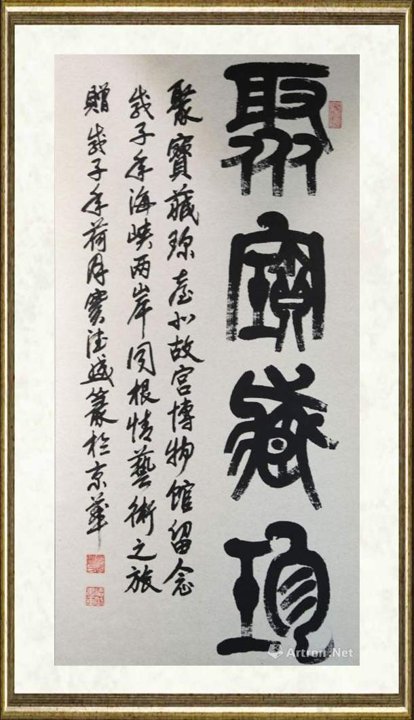 聚寶藏珍
聚寶藏珎臺北故宮博物館留念
戊子年海峽兩岸同根情藝術之旅
贈戊子年荷月篆於京華
Artron.Net